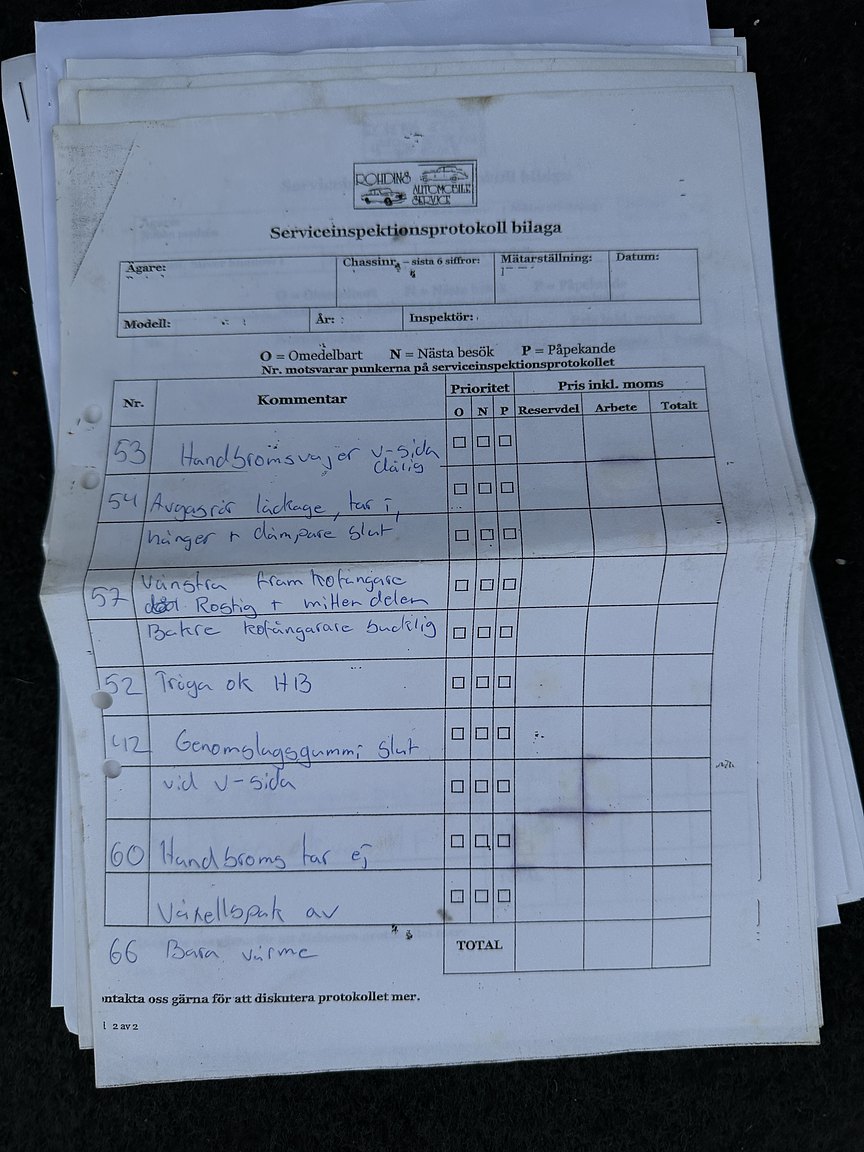 ROHDINS
AUTOMOBILE
SERVICE
Serviceinspektionsprotokoll bilaga
Ägare:
Chassinr, – sista 6 siffror:
Mätarställning:
Datum:
Modell:
År:
Inspektör:
O = Omedelbart N = Nästa besök P = Påpekande
Nr. motsvarar punkerna på serviceinspektionsprotokollet
Nr. Kommentar Prioritet Pris inkl. moms
O N P Reservdel Arbete Totalt
53 Handbromsvajer v-sida
dålig
54 Avgasrör läckage, tar i,
hänger + dämpare slut
57 Vänstra fram kofångare
Rostig + mitten delen
Bakre kofångarare bucklig
52 Tröga ok HB
42 Genomslagsgummi slut
vid v-sida
60 Handbroms tar ej
Växellspak av
66 Bara värme
TOTAL
ontakta oss gärna för att diskutera protokollet mer.
2 av 2